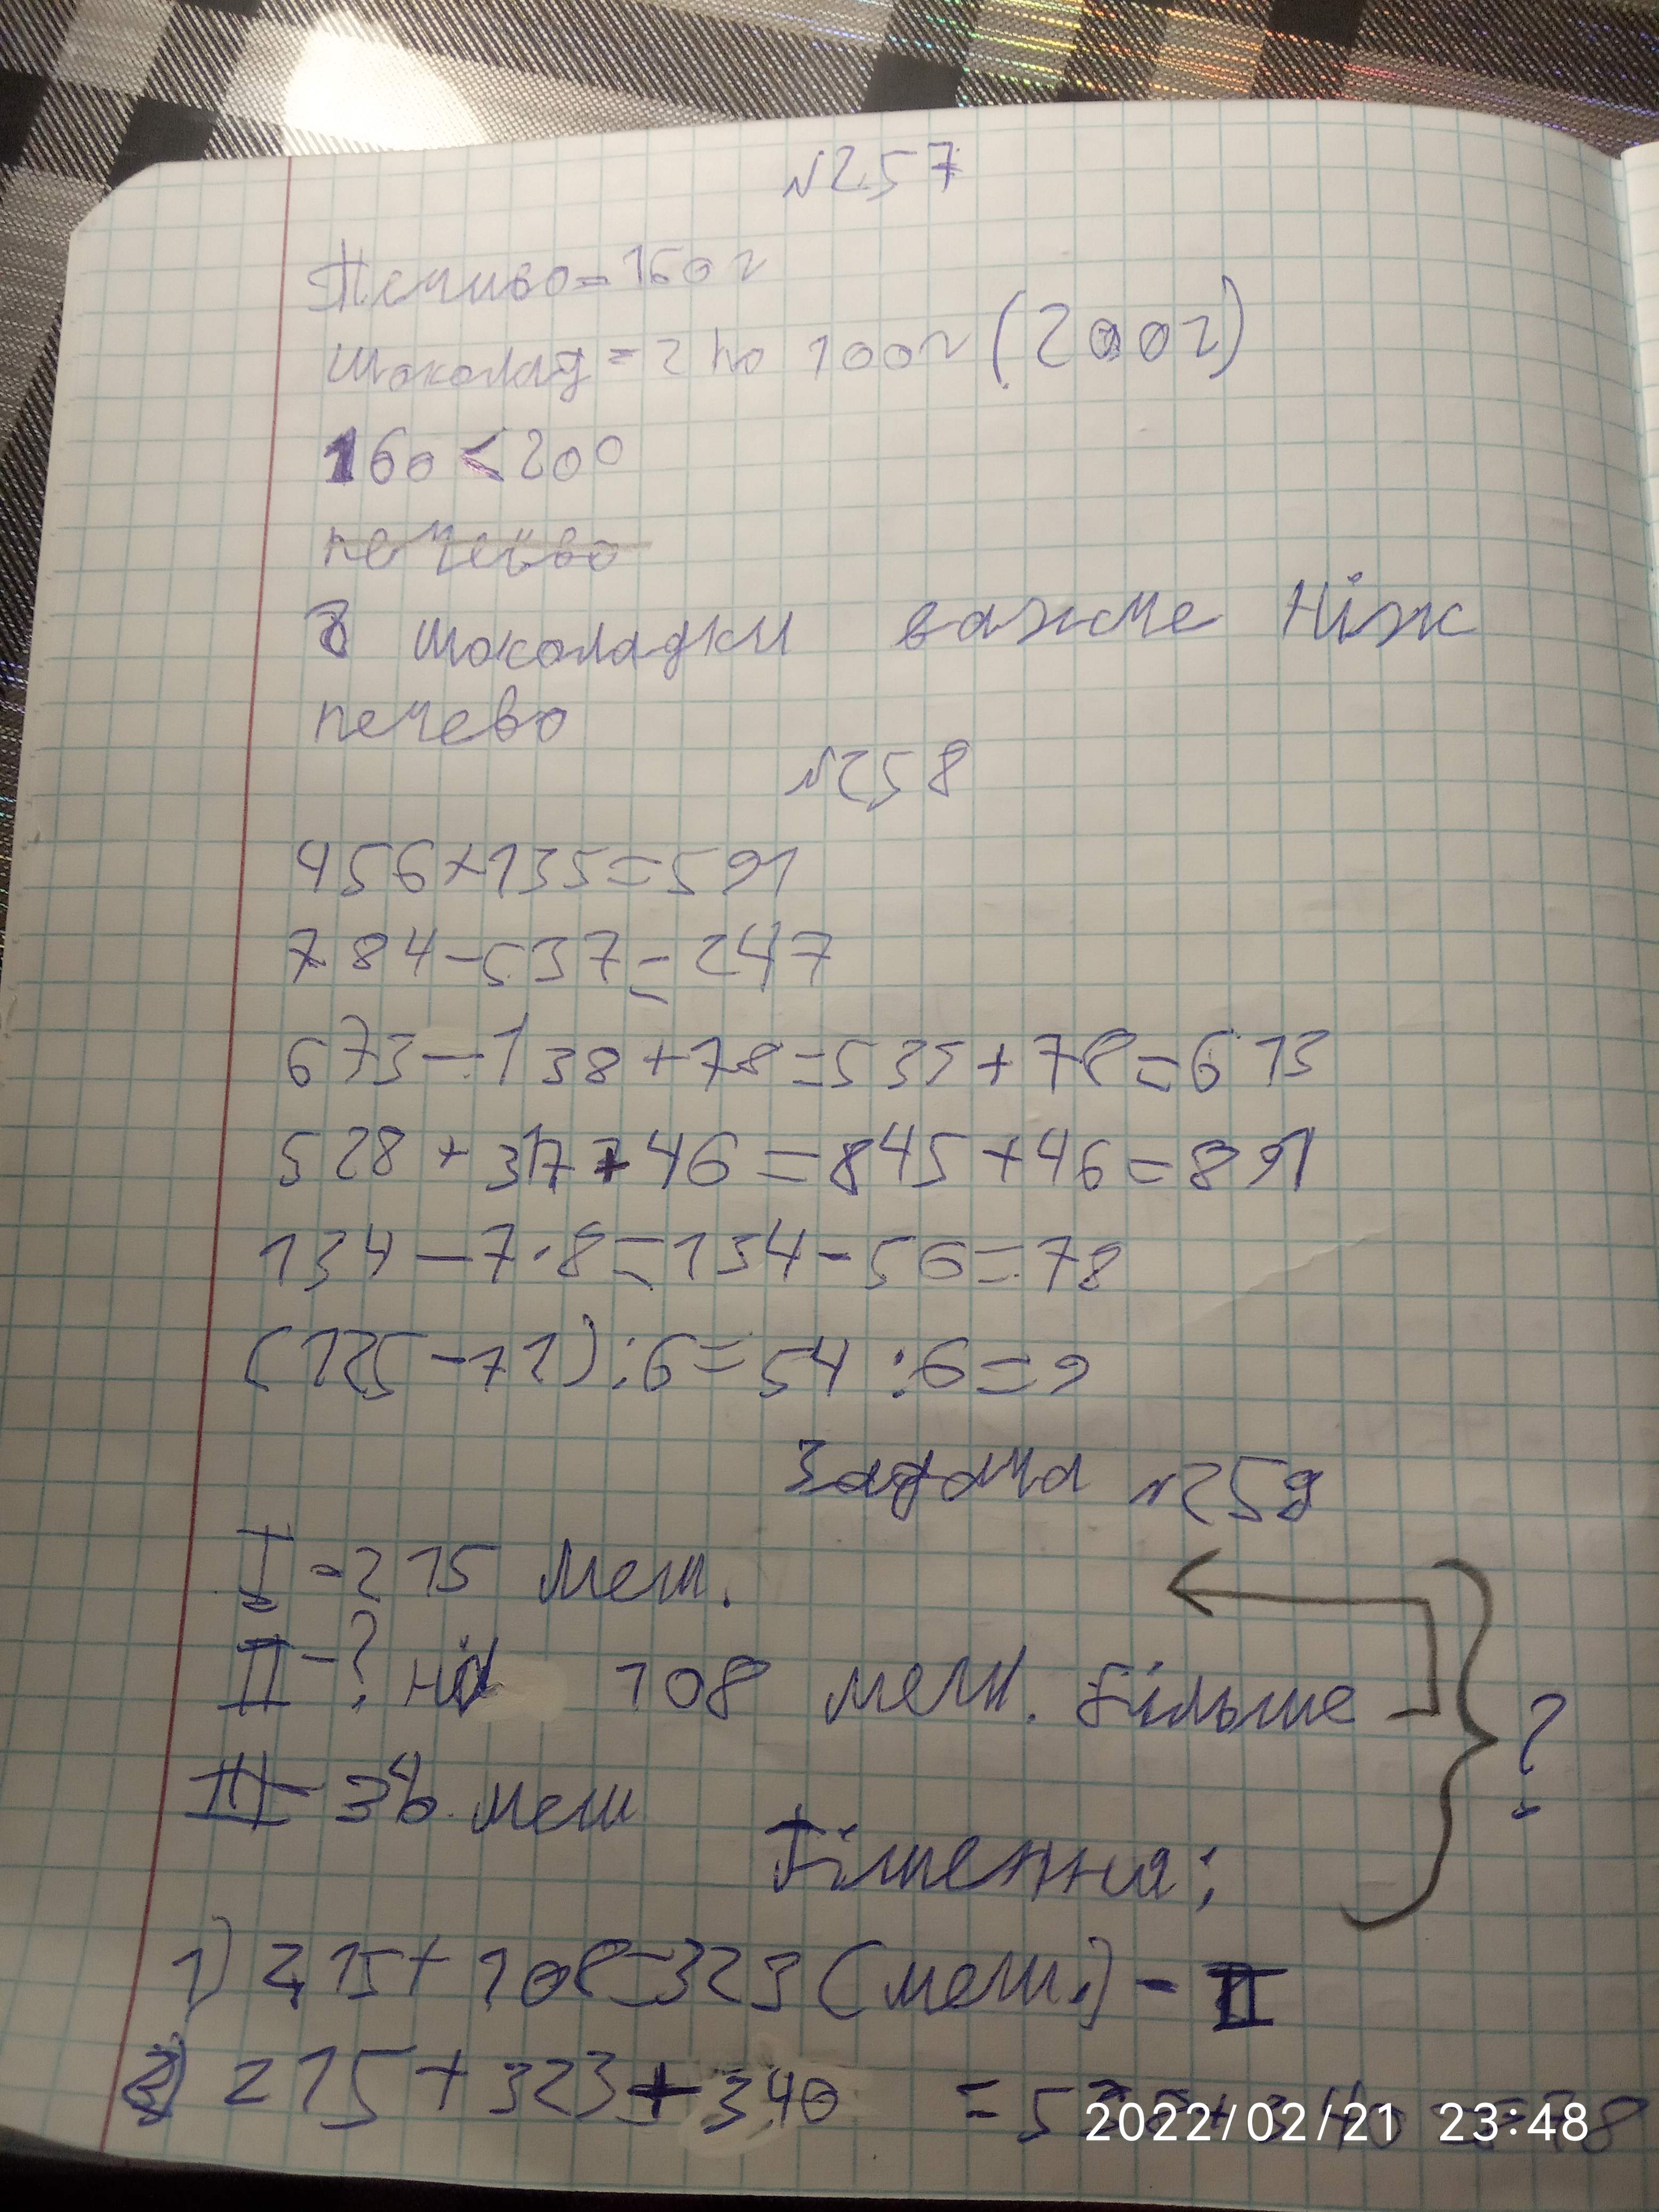 №257
Печиво=160г
Шоколад=2 по 100г (200г)
160<200
печево
шоколадки важче ніж
печево
№258
456+135=591
784-537=247
673-138+78=535+78=613
528+317+46=845+46=891
134-7·8=134-56=78
(125-71):6=54:6=9
Задача №259
I-215 меш.
II-? на 108 меш. більше
?
III- меш
Рішення:
1) 215+108=323 (меш.)-II
2) 215+323+340 =
2022/02/21 23:48